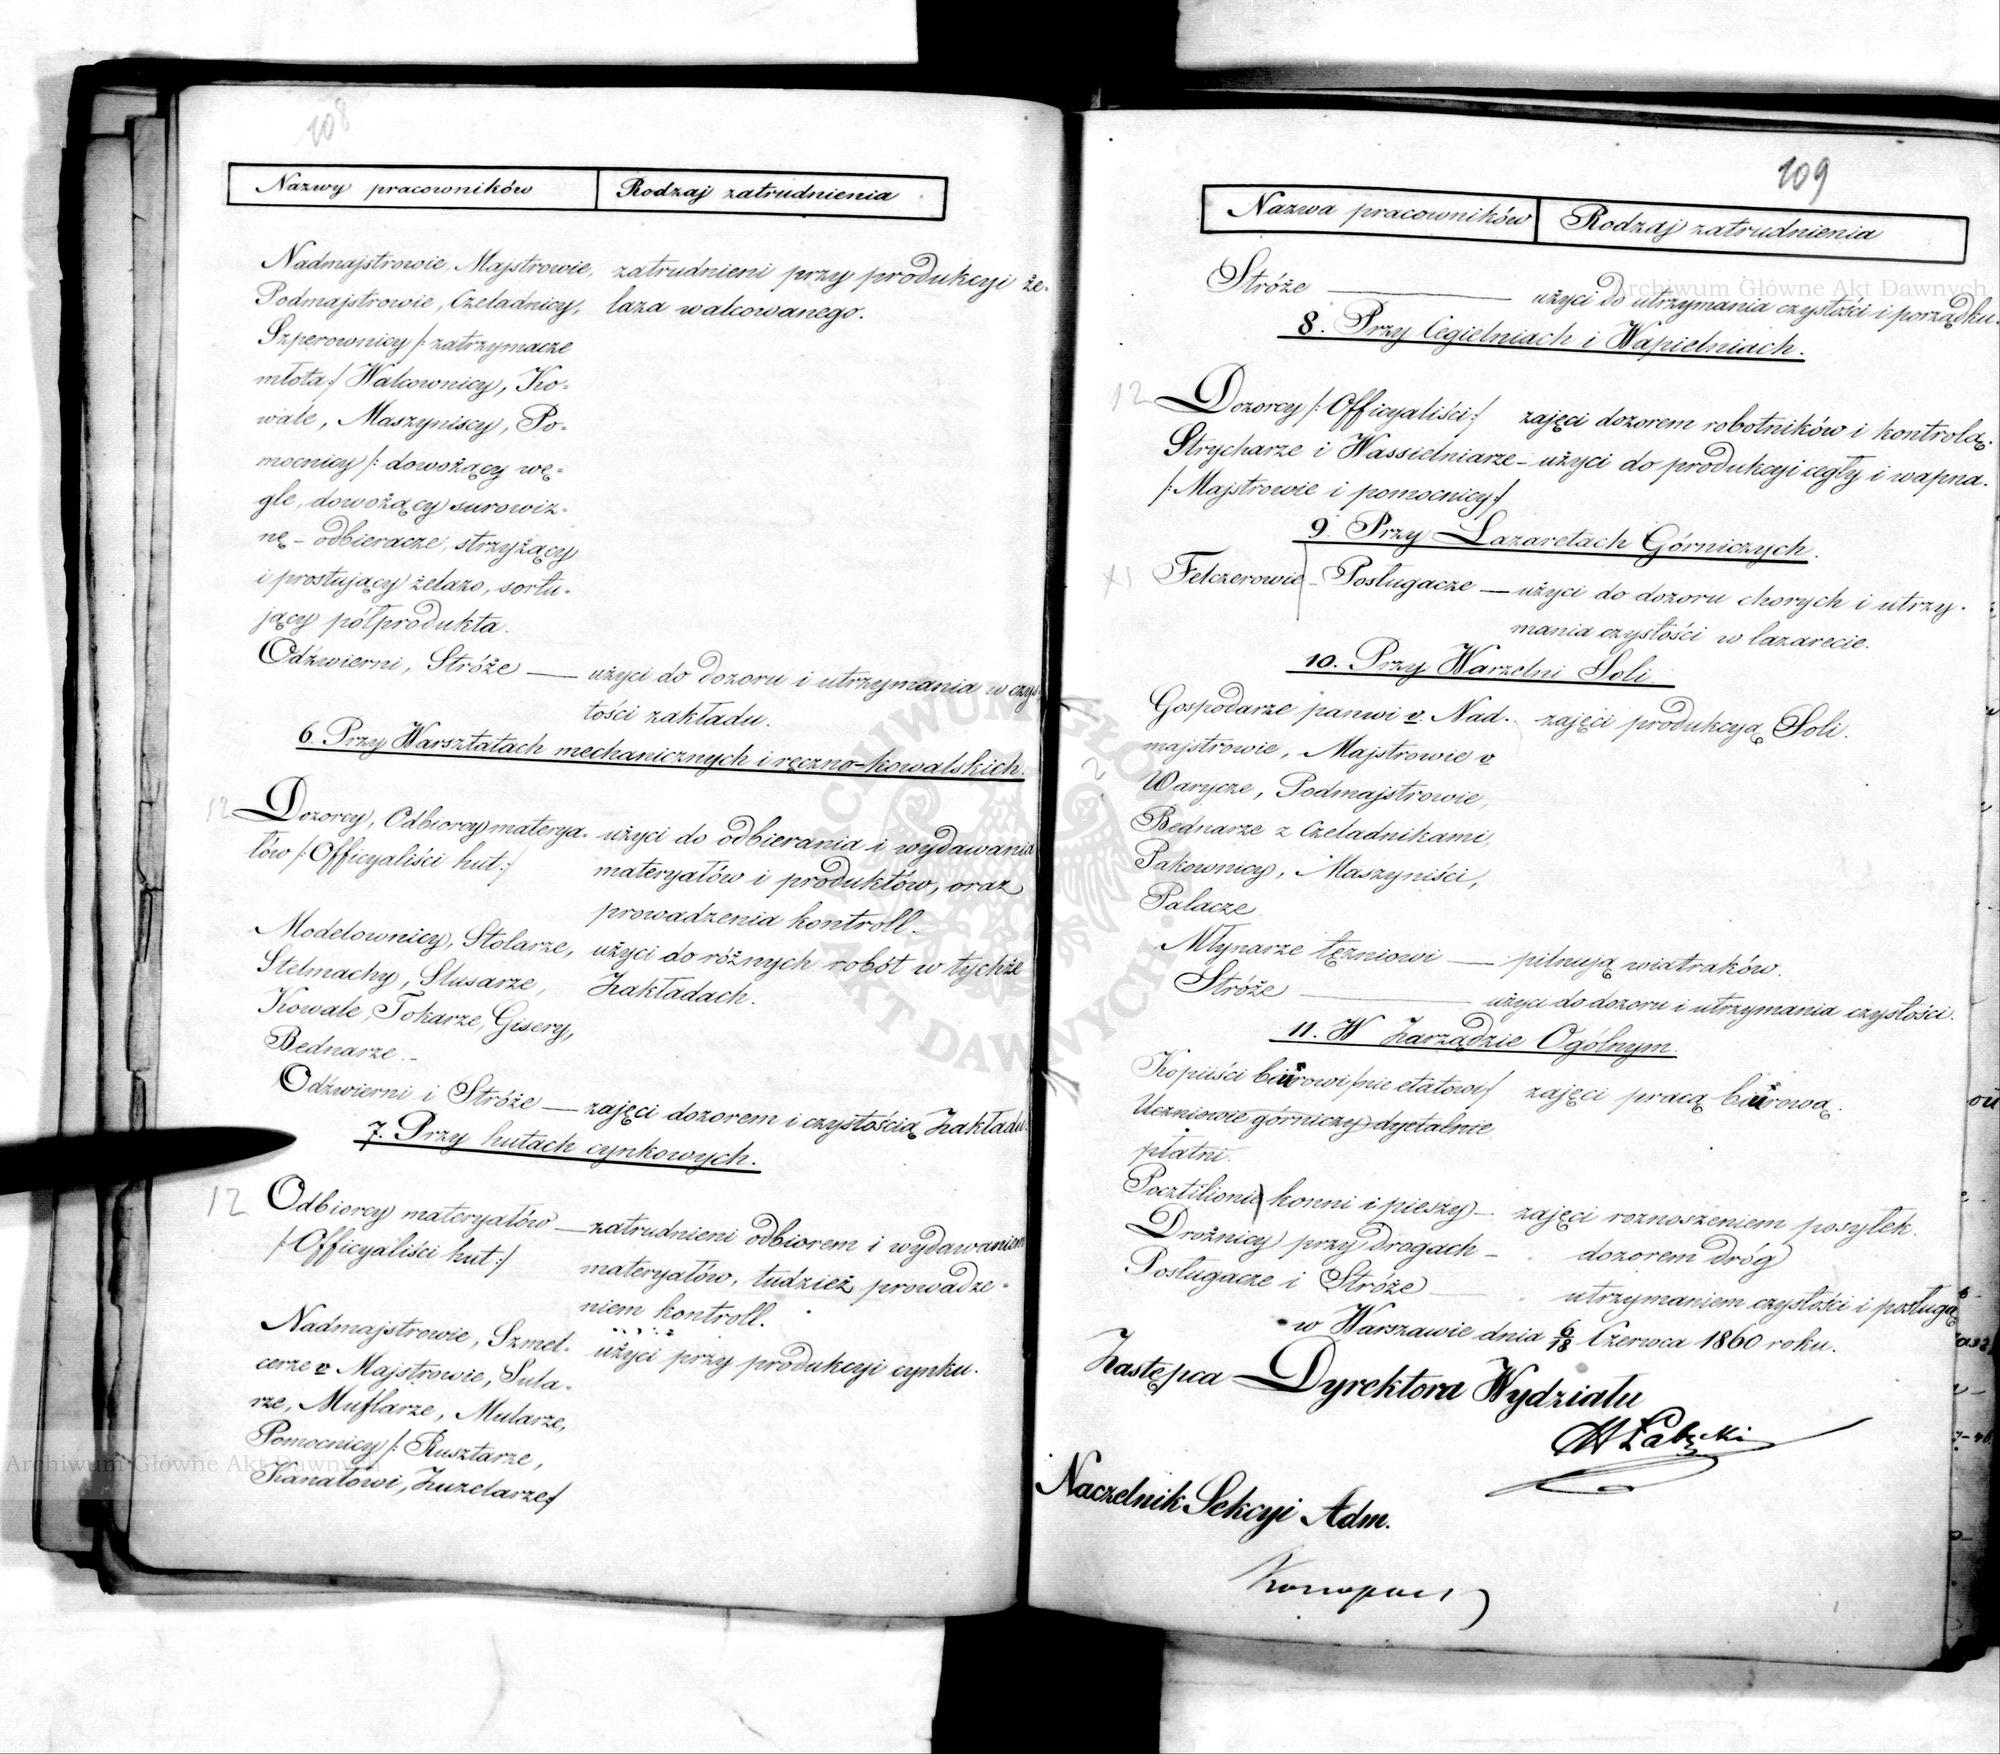 108
Nazwy pracowników Rodzaj zatrudnienia
Nadmajstrowie, Majstrowie, zatrudnieni przy produkcyi że-
Podmajstrowie, Czeladnicy, laza walcowanego.
Szperownicy /: zatrzymacze
młota :/ Walcownicy, Ko-
wale, Maszyniscy, Po-
mocnicy /: dowożący wę-
gle, dowożący surowiz-
nę – odbieracze, strzyżący
i prostujący żelazo, sortu-
jący półprodukta.
Odźwierni, Stróże — użyci do dozoru i utrzymania w czys-
tości zakładu.
6. Przy Warsztatach mechanicznych i ręczno-kowalskich.
12 Dozorcy, Odbiorcy materya- użyci do odbierania i wydawania
łów /: Officyaliści hut :/ materyałów i produktów, oraz
prowadzenia kontroll.
Modelownicy, Stolarze, użyci do różnych robót w tychże
Stelmachy, Slusarze, Zakładach.
Kowale, Tokarze, Gisery,
Bednarze.-
Odźwierni i Stróże — zajęci dozorem i czystością Zakładu.
7. Przy hutach cynkowych.
12 Odbiorcy materyałów — zatrudnieni odbiorem i wydawaniem
/: Officyaliści hut :/ materyałów, tudzież prowadze-
niem kontroll.
Nadmajstrowie, Szmel- użyci przy produkcyi cynku.
cerze v Majstrowie, Sula-
rze, Muflarze, Mularze,
Pomocnicy /: Rusztarze,
Kanałowi, Zuzelarze :/
109
Nazwa pracowników Rodzaj zatrudnienia
Stróże — użyci do utrzymania czystości i porządku.
8. Przy Cegielniach i Wapielniach.
12 Dozorcy /: Officyaliści :/ zajęci dozorem robotników i kontrolą.
Strycharze i Wassielniarze – użyci do produkcyi cegły i wapna.
/: Majstrowie i pomocnicy :/
9. Przy Lazaretach Górniczych.
XI Felczerowie – Posługacze — użyci do dozoru chorych i utrzy-
mania czystości w lazarecie.
10. Przy Warzelni Soli
Gospodarze panwi v. Nad- zajęci produkcyą Soli.
majstrowie, Majstrowie v
Warycze, Podmajstrowie,
Bednarze z Czeladnikami,
Pakownicy, Maszyniści,
Palacze.
Młynarze tężniowi — pilnują wiatraków.
Stróże — użyci do dozoru i utrzymania czystości.
11. W Zarządzie Ogólnym.
Kopiiści biurowi /nie etatowi/ zajęci pracą biurową.
Uczniowie górniczy dyetalnie
płatni.
Pocztilioni konni i pieszy – zajęci roznoszeniem posyłek.
Drożnicy przy drogach – dozorem dróg
Posługacze i Stróże — utrzymaniem czystości i posługą
w Warszawie dnia 6/18 Czerwca 1860 roku.
Zastępca Dyrektora Wydziału
H Łabęcki
Naczelnik Sekcyi Adm.
Archiwum Główne Akt Dawnych
Archiwum Główne Akt Dawnych
ARCHIWUM GŁÓWNE AKT DAWNYCH